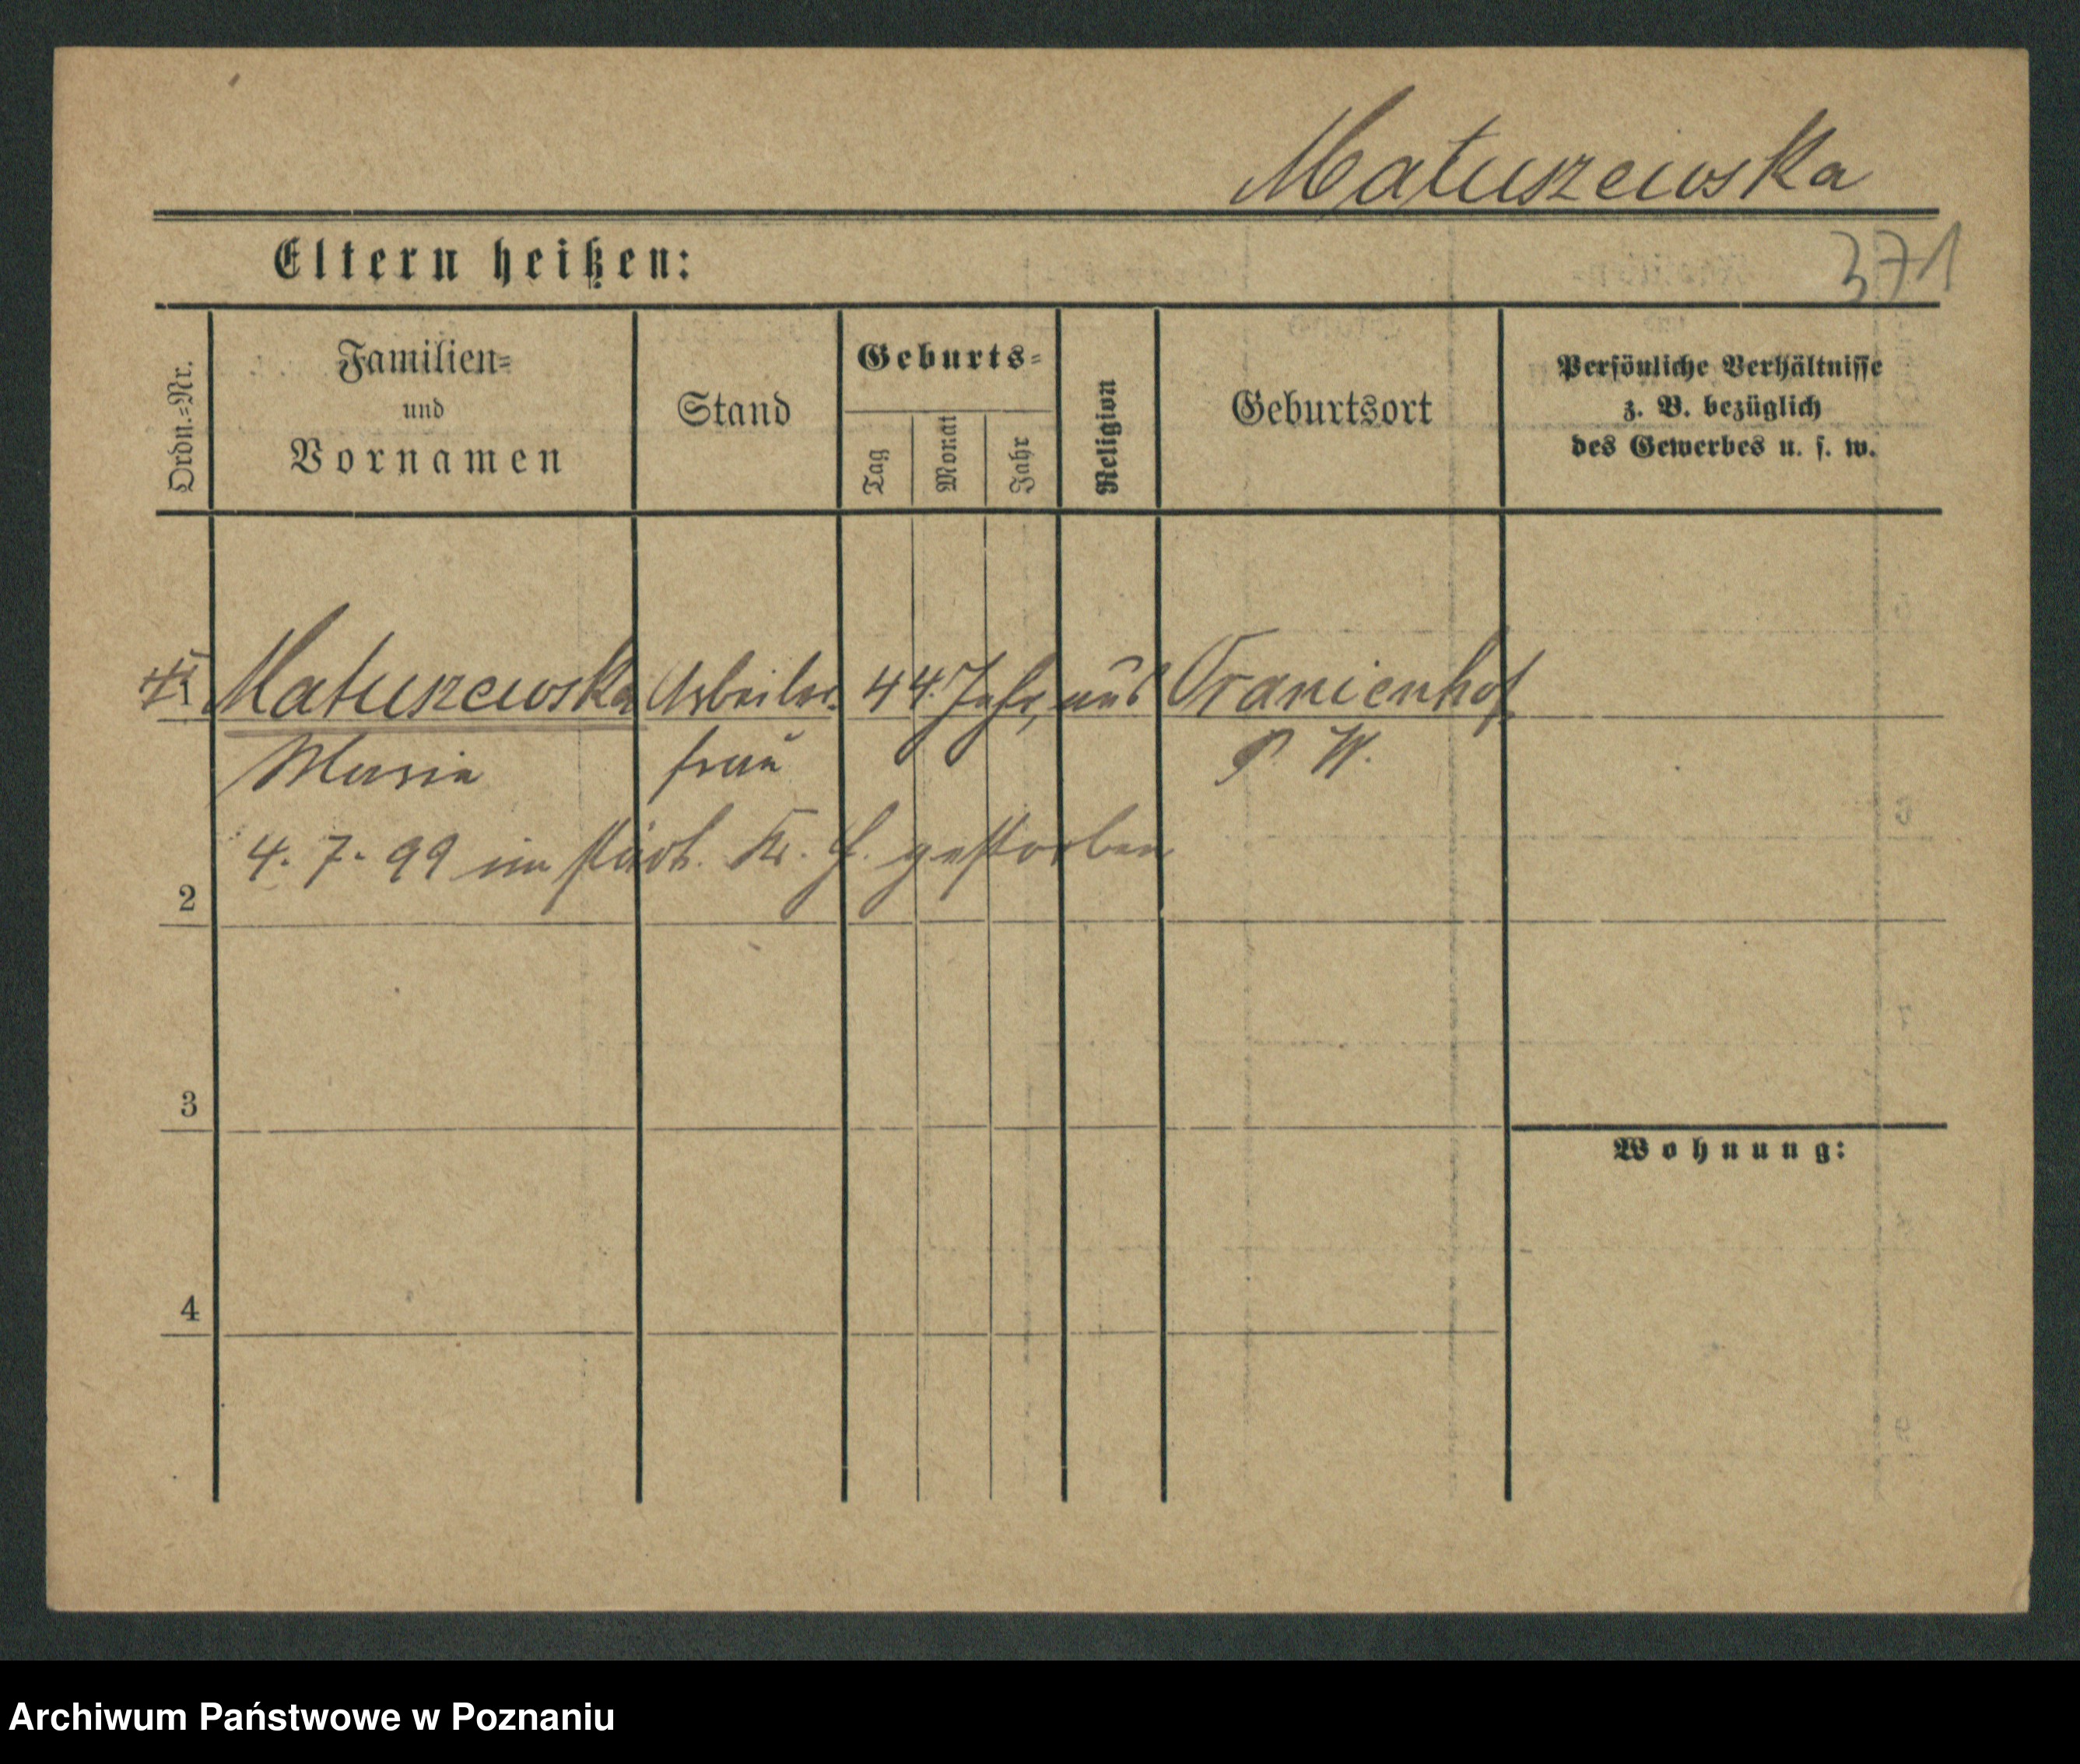 Matuszewska
371
Eltern heißen:
Ordn.-Nr.
Familien-
und
Vornamen
Stand
Geburts-
Tag
Monat
Jahr
Religion
Geburtsort
Persönliche Verhältnisse
z. B. bezüglich
des Gewerbes u. s. w.
Matuszewska Arbeiter- 44 Jahr, aus Oranienhof
Maria frau P. W.
4. 7. 99 im städt. Kr. H. gestorben
2
3
Wohnung:
4
Archiwum Państwowe w Poznaniu